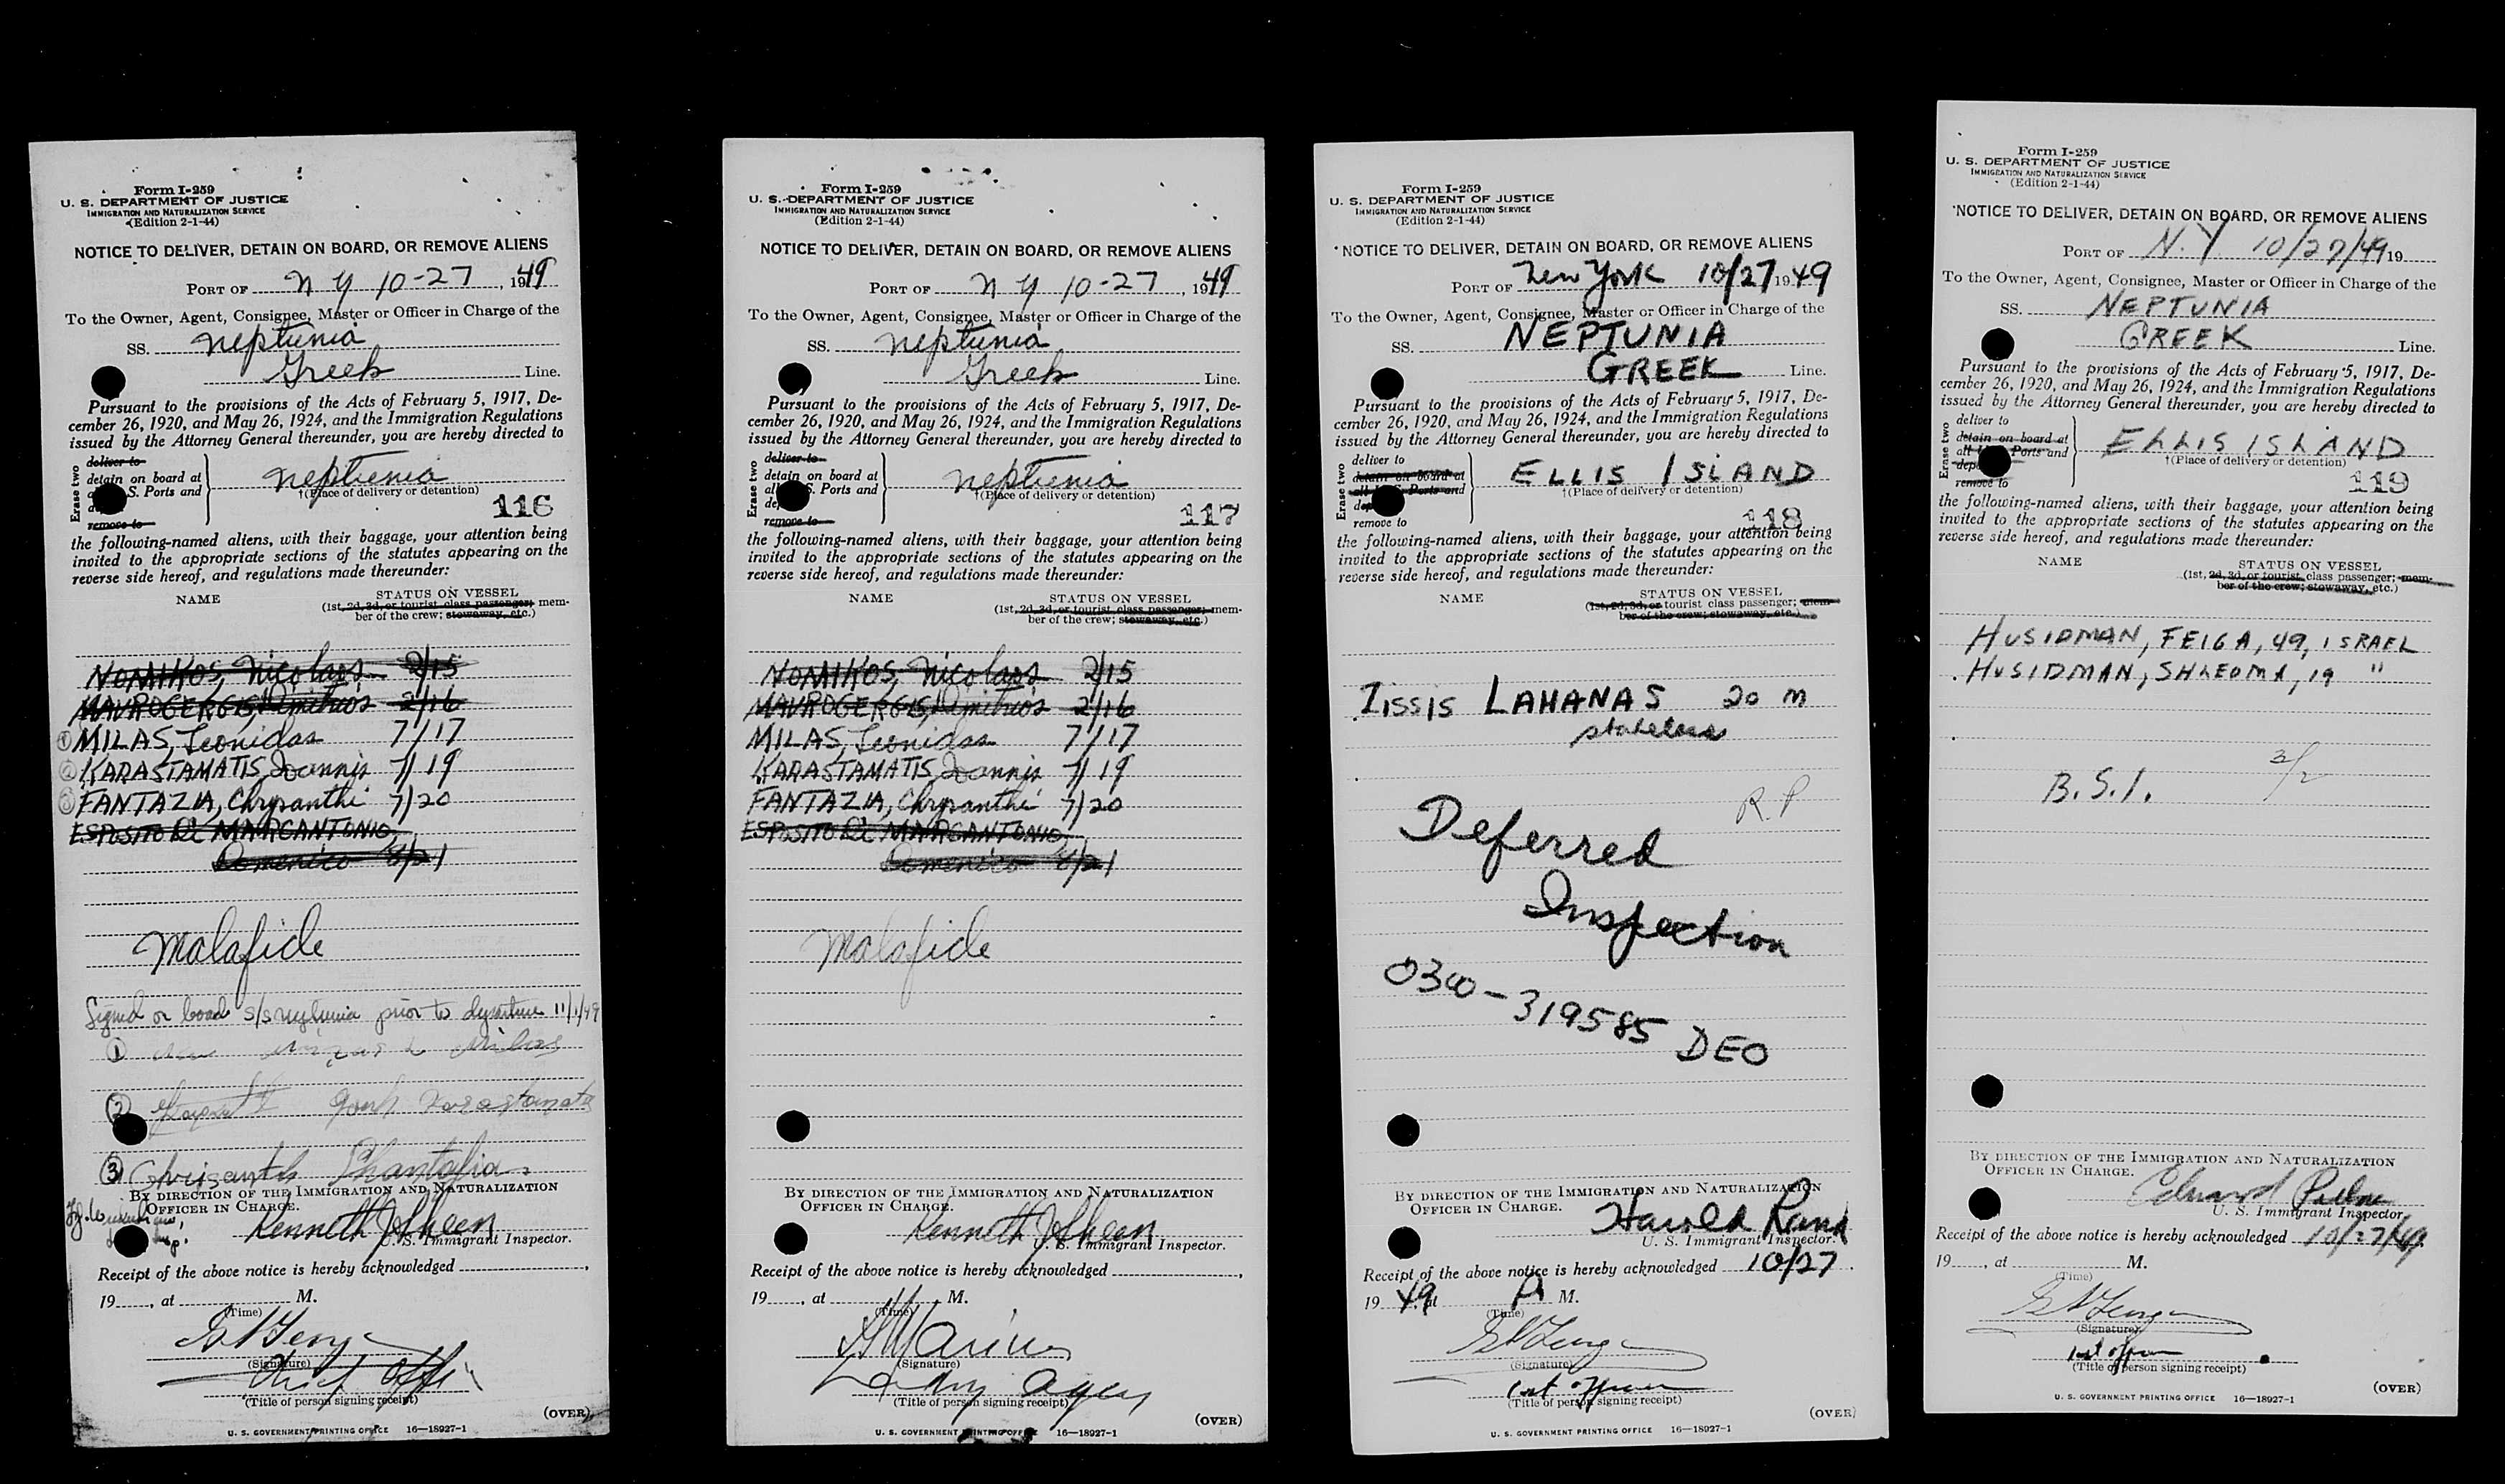 Form I-259
U. S. DEPARTMENT OF JUSTICE
IMMIGRATION AND NATURALIZATION SERVICE
(Edition 2-1-44)
NOTICE TO DELIVER, DETAIN ON BOARD, OR REMOVE ALIENS
PORT OF N Y 10-27, 1949
To the Owner, Agent, Consignee, Master or Officer in Charge of the
SS. Neptunia
Greek Line.
Pursuant to the provisions of the Acts of February 5, 1917, De-
cember 26, 1920, and May 26, 1924, and the Immigration Regulations
issued by the Attorney General thereunder, you are hereby directed to
Erase two
deliver to
detain on board at
S. Ports and
remove to
Neptunia
†(Place of delivery or detention)
116
the following-named aliens, with their baggage, your attention being
invited to the appropriate sections of the statutes appearing on the
reverse side hereof, and regulations made thereunder:
NAME
STATUS ON VESSEL
(1st, 2d, 3d, or tourist class passenger; mem-
ber of the crew; stowaway, etc.)
NOMIKOS, Nicolaos 2/15
MAVROGERGIS, Dimitrios 2/16
① MILAS, Leonidas 7/17
② KARASTAMATIS, Ioannis 7/19
③ FANTAZIA, Chrysanthi 7/20
ESPOSITO Di MARCANTONIO,
Domenico 8/21
Malafide
Signed on board s/s Neptunia prior to departure 11/1/49
①
②
③ Chrisanth Phantasia
BY DIRECTION OF THE IMMIGRATION AND NATURALIZATION
OFFICER IN CHARGE.
Kenneth
U. S. Immigrant Inspector.
Receipt of the above notice is hereby acknowledged
19 , at M.
(Time)
(Signature)
Chief Offi
(Title of person signing receipt)
(OVER)
U. S. GOVERNMENT PRINTING OFFICE 16—18927-1
Form I-259
U. S. DEPARTMENT OF JUSTICE
IMMIGRATION AND NATURALIZATION SERVICE
(Edition 2-1-44)
NOTICE TO DELIVER, DETAIN ON BOARD, OR REMOVE ALIENS
PORT OF N Y 10-27, 1949
To the Owner, Agent, Consignee, Master or Officer in Charge of the
SS. Neptunia
Greek Line.
Pursuant to the provisions of the Acts of February 5, 1917, De-
cember 26, 1920, and May 26, 1924, and the Immigration Regulations
issued by the Attorney General thereunder, you are hereby directed to
Erase two
deliver to
detain on board at
S. Ports and
remove to
Neptunia
†(Place of delivery or detention)
117
the following-named aliens, with their baggage, your attention being
invited to the appropriate sections of the statutes appearing on the
reverse side hereof, and regulations made thereunder:
NAME
STATUS ON VESSEL
(1st, 2d, 3d, or tourist class passenger; mem-
ber of the crew; stowaway, etc.)
NOMIKOS, Nicolaos 2/15
MAVROGERGIS, Dimitrios 2/16
MILAS, Leonidas 7/17
KARASTAMATIS, Ioannis 7/19
FANTAZIA, Chrysanthi 7/20
ESPOSITO Di MARCANTONIO,
Domenico 8/21
Malafide
BY DIRECTION OF THE IMMIGRATION AND NATURALIZATION
OFFICER IN CHARGE.
Kenneth
U. S. Immigrant Inspector.
Receipt of the above notice is hereby acknowledged
19 , at M.
(Time)
(Signature)
(Title of person signing receipt)
(OVER)
U. S. GOVERNMENT PRINTING OFFICE 16—18927-1
Form I-259
U. S. DEPARTMENT OF JUSTICE
IMMIGRATION AND NATURALIZATION SERVICE
(Edition 2-1-44)
NOTICE TO DELIVER, DETAIN ON BOARD, OR REMOVE ALIENS
PORT OF New York 10/27 1949
To the Owner, Agent, Consignee, Master or Officer in Charge of the
SS. NEPTUNIA
GREEK Line.
Pursuant to the provisions of the Acts of February 5, 1917, De-
cember 26, 1920, and May 26, 1924, and the Immigration Regulations
issued by the Attorney General thereunder, you are hereby directed to
Erase two
deliver to
detain on board at
all U. S. Ports and
remove to
ELLIS ISLAND
†(Place of delivery or detention)
118
the following-named aliens, with their baggage, your attention being
invited to the appropriate sections of the statutes appearing on the
reverse side hereof, and regulations made thereunder:
NAME
STATUS ON VESSEL
(1st, 2d, 3d, or tourist class passenger; mem-
ber of the crew; stowaway, etc.)
ZISSIS LAHANAS 20 m
stateless
R. P
Deferred
Inspection
0300-319585 DEO
BY DIRECTION OF THE IMMIGRATION AND NATURALIZATION
OFFICER IN CHARGE.
Harold Rand
U. S. Immigrant Inspector.
Receipt of the above notice is hereby acknowledged 10/27
19 49 at P M.
(Time)
(Signature)
1st Officer
(Title of person signing receipt)
(OVER)
U. S. GOVERNMENT PRINTING OFFICE 16—18927-1
Form I-259
U. S. DEPARTMENT OF JUSTICE
IMMIGRATION AND NATURALIZATION SERVICE
(Edition 2-1-44)
NOTICE TO DELIVER, DETAIN ON BOARD, OR REMOVE ALIENS
PORT OF N.Y. 10/27/49 19
To the Owner, Agent, Consignee, Master or Officer in Charge of the
SS. NEPTUNIA
GREEK Line.
Pursuant to the provisions of the Acts of February 5, 1917, De-
cember 26, 1920, and May 26, 1924, and the Immigration Regulations
issued by the Attorney General thereunder, you are hereby directed to
Erase two
deliver to
detain on board at
all Ports and
remove to
ELLIS ISLAND
†(Place of delivery or detention)
119
the following-named aliens, with their baggage, your attention being
invited to the appropriate sections of the statutes appearing on the
reverse side hereof, and regulations made thereunder:
NAME
STATUS ON VESSEL
(1st, 2d, 3d, or tourist class passenger; mem-
ber of the crew; stowaway, etc.)
HUSIDMAN, FEIGA, 49, ISRAEL
HUSIDMAN, SHLEOMA, 19 "
B.S.I. 2/2
BY DIRECTION OF THE IMMIGRATION AND NATURALIZATION
OFFICER IN CHARGE.
Edward
U. S. Immigrant Inspector.
Receipt of the above notice is hereby acknowledged 10/27/49
19 , at M.
(Time)
(Signature)
1st Officer
(Title of person signing receipt)
(OVER)
U. S. GOVERNMENT PRINTING OFFICE 16—18927-1